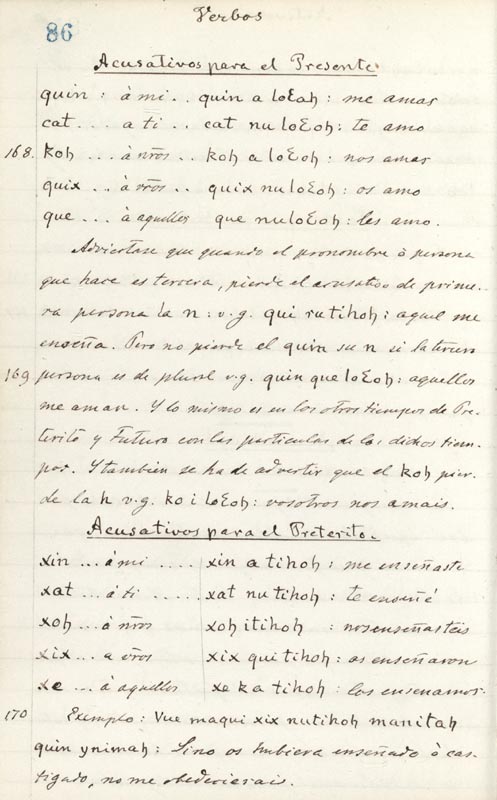 Verbos
86
Acusativos para el Presente.
quin : à mi .. quin a loƐoꜧ : me amas
cat ... a ti .. cat nu loƐoꜧ : te amo
168. koꜧ ... à nr̃os .. koꜧ a loƐoꜧ : nos amas
quix ... à vr̃os .. quix nu loƐoꜧ : os amo
que ... à aquellos que nu loƐoꜧ : les amo.
Adviertase que quando el pronombre ò persona
que hace es tercera, pierde el acusativo de prime-
ra persona la n : v.g. qui ru tihoꜧ : aquel me
enseña. Pero no pierde el quin su n si la tercera
169 persona es de plural v.g. quin que loƐoꜧ : aquellos
me aman. Y lo mismo es en los otros tiempos de Pre-
terito y Futuro con las particulas de los dichos tiem-
pos. Y tambien se ha de advertir que el koꜧ pier-
de la ꜧ v.g. ko i loƐoꜧ : vosotros nos amais.
Acusativos para el Preterito.
xin ... à mi .... xin a tihoꜧ : me enseñaste
xat ... à ti ..... xat nu tihoꜧ : te enseñé
xoꜧ ... à nr̃os xoꜧ i tihoꜧ : nos enseñasteis
xix ... a vr̃os xix qui tihoꜧ : os enseñaron
xe ... à aquellos xe ka tihoꜧ : los enseñamos.
170 Exemplo : Vue maqui xix nutihoꜧ manitaꜧ
quin ynimaꜧ : Sino os hubiera enseñado ò cas-
tigado, no me obedecierais.